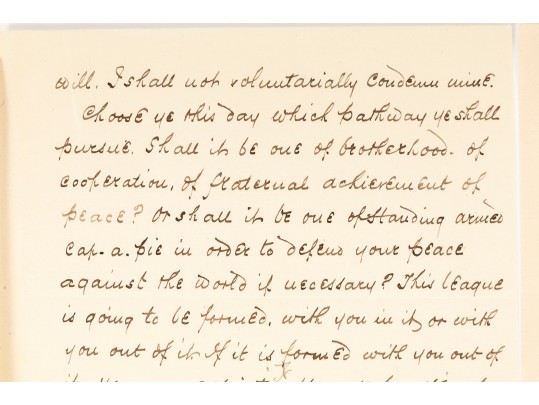 will. I shall not voluntarially condemn mine.
Choose ye this day which pathway ye shall
pursue. Shall it be one of brotherhood. of
cooperation, of fraternal achievement of
peace? Or shall it be one of standing armed
cap-a-pie in order to defend your peace
against the world if necessary? This league
is going to be formed, with you in it, or with
you out of it. If it is formed with you out of